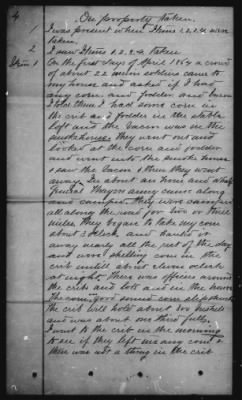 4
On property taken.
1 I was present when Items 1, 2, 3, 4 were
taken.
2 I saw Items 1, 2, 3, 4 taken
Item 1 On the first days of April 1864 a crowd
of about 22 union soldiers came to
my house and asked if I had
any corn and fodder and bacon
I told them I had some corn in
the crib and fodder in the stable
loft and the bacon was in the
smokehouse. They went out and
looked at the corn and fodder
and went into the smoke house
& saw the bacon & then they went
away. In about an hour and a half
General Thayers army came along
and camped. They were camped
all along the road for two or three
miles. They began to take my corn
about 3 oclock and hauled it
away nearly all the rest of the day
and were shelling corn in the
crib untill about eleven oclock
at night. There was officers around
the cribs and lots and in the house
The corn was good sound corn
the crib will hold about 800 bushels
and was about one third full.
I went to the crib in the morning
to see if they left me any corn &
there was not a thing in the crib